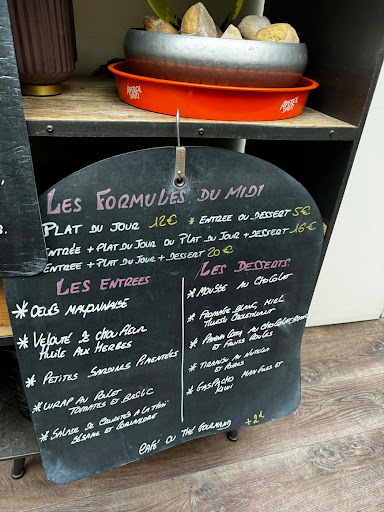 APEROL
SPRITZ
APEROL
SPRITZ
LES FORMULES DU MIDI
PLAT DU JOUR 12€ * ENTREE OU DESSERT 5€
ENTRÉE + PLAT DU JOUR OU PLAT DU JOUR + DESSERT 16€
ENTREE + PLAT DU JOUR + DESSERT 20€
LES ENTREES
* OEUFS MAYONNAISE
* VELOUTÉ DE CHOU FLEUR
HUILE AUX HERBES
* PETITES SARDINES PIMENTÉES
* WRAP AU POULET
TOMATES ET BASILIC
* SALADE DE CRUDITÉS A LA THAÏ
SÉSAME ET CORIANDRE
LES DESSERTS
* MOUSSE AU CHOCOLAT
* FROMAGE BLANC, MIEL
* PANNA COTTA AU CHOCOLAT BLANC
ET FRUITS ROUGES
* TIRAMISU AU NUTELLA
* GASPACHO MANGUES ET
KIWI
CAFÉ OU THÉ GOURMAND +2€